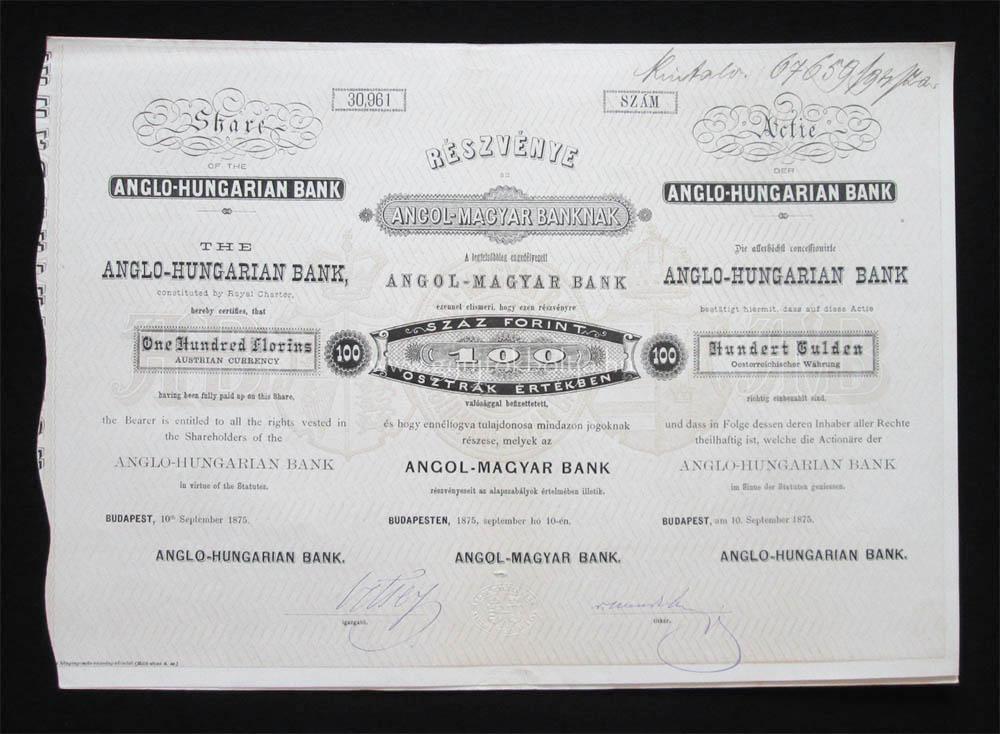 67659/94
30,961
SZÁM
Share
OF THE
ANGLO-HUNGARIAN BANK
THE
ANGLO-HUNGARIAN BANK,
constituted by Royal Charter,
hereby certifies, that
One Hundred Florins
AUSTRIAN CURRENCY
having been fully paid up on this Share,
the Bearer is entitled to all the rights vested in
the Shareholders of the
ANGLO-HUNGARIAN BANK
in virtue of the Statutes.
BUDAPEST, 10th September 1875.
ANGLO-HUNGARIAN BANK.
RÉSZVÉNYE
az
ANGOL-MAGYAR BANKNAK
A legfelsőbbleg engedélyezett
ANGOL-MAGYAR BANK
ezennel elismeri, hogy ezen részvényre
SZÁZ FORINT
100
100
100
OSZTRÁK ÉRTÉKBEN
valósággal befizettetett,
és hogy ennélfogva tulajdonosa mindazon jogoknak
részese, melyek az
ANGOL-MAGYAR BANK
részvényeseit az alapszabályok értelmében illetik.
BUDAPESTEN, 1875, september hó 10-én.
ANGOL-MAGYAR BANK.
Actie
DER
ANGLO-HUNGARIAN BANK
Die allerhöchst concessionirte
ANGLO-HUNGARIAN BANK
bestätigt hiermit, dass auf diese Actie
Hundert Gulden
Oesterreichischer Währung
richtig einbezahlt sind,
und dass in Folge dessen deren Inhaber aller Rechte
theilhaftig ist, welche die Actionäre der
ANGLO-HUNGARIAN BANK
im Sinne der Statuten geniessen.
BUDAPEST, am 10. September 1875.
ANGLO-HUNGARIAN BANK.
igazgató.
titkár.